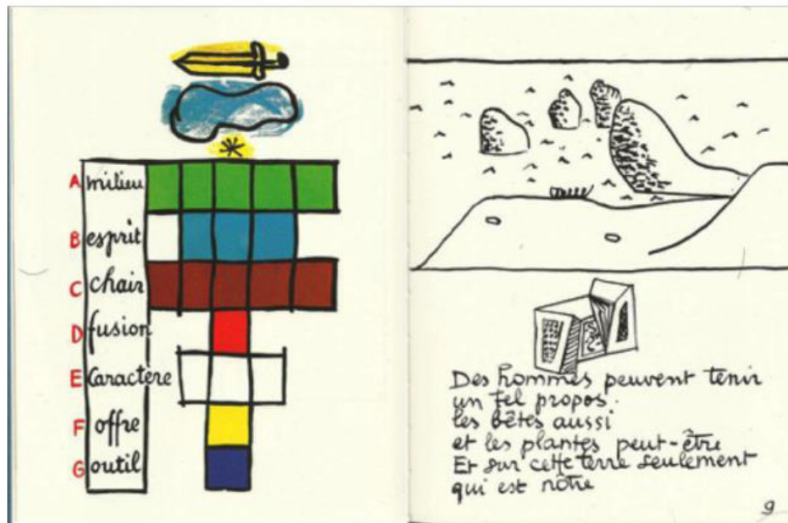 A milieu
B esprit
C chair
D fusion
E Caractère
F offre
G outil
Des hommes peuvent tenir
un tel propos
les bêtes aussi
et les plantes peut-être
Et sur cette terre seulement
qui est nôtre
9